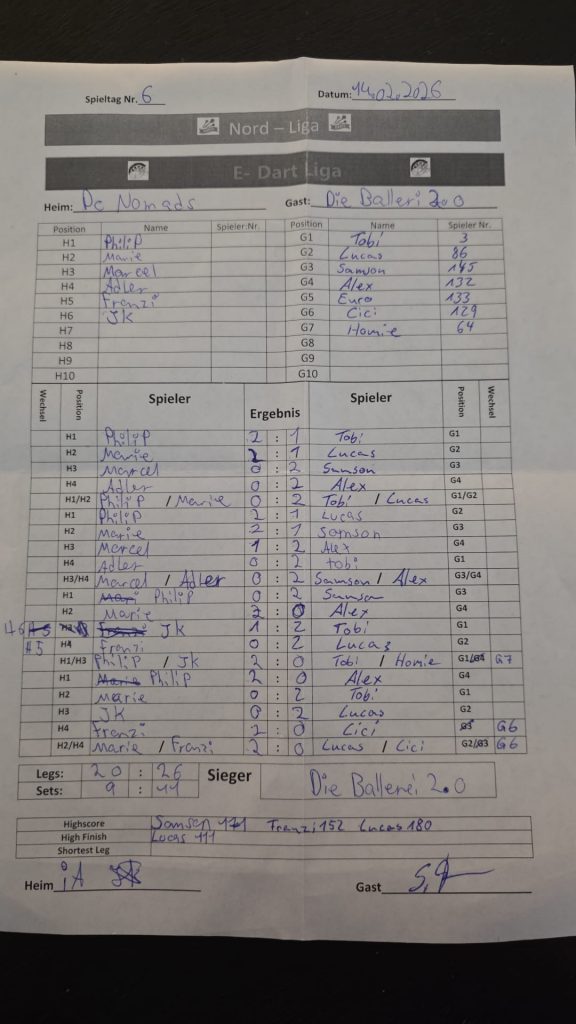 Spieltag Nr. 6 Datum: 14.02.2026
Nord – Liga
E- Dart Liga
Heim: Dc Nomads Gast: Die Ballerei 2.0
Position Name Spieler:Nr. Position Name Spieler Nr.
H1 Philip G1 Tobi 3
H2 Marie G2 Lucas 86
H3 Marcel G3 Samson 145
H4 Adler G4 Alex 132
H5 Franzi G5 Euro 133
H6 Jk G6 Cici 129
H7 G7 Homie 64
H8 G8
H9 G9
H10 G10
Wechsel Position Spieler Ergebnis Spieler Position Wechsel
H1 Philip 2 : 1 Tobi G1
H2 Marie 2 : 1 Lucas G2
H3 Marcel 0 : 2 Samson G3
H4 Adler 0 : 2 Alex G4
H1/H2 Philip / Marie 0 : 2 Tobi / Lucas G1/G2
H1 Philip 2 : 1 Lucas G2
H2 Marie 2 : 1 Samson G3
H3 Marcel 1 : 2 Alex G4
H4 Adler 0 : 2 Tobi G1
H3/H4 Marcel / Adler 0 : 2 Samson / Alex G3/G4
H1 Mari Philip 0 : 2 Samson G3
H2 Marie 2 : 0 Alex G4
H6 H5 H3 Franzi Jk 1 : 2 Tobi G1
H5 H4 Franzi 0 : 2 Lucas G2
H1/H3 Philip / Jk 2 : 0 Tobi / Homie G1/G4 G7
H1 Marie Philip 2 : 0 Alex G4
H2 Marie 0 : 2 Tobi G1
H3 Jk 0 : 2 Lucas G2
H4 Franzi 2 : 0 Cici G3 G6
H2/H4 Marie / Franzi 2 : 0 Lucas / Cici G2/G3 G6
Legs: 20 : 26 Sieger Die Ballerei 2.0
Sets: 9 : 11
Highscore Samson 171 Franzi 152 Lucas 180
High Finish Lucas 111
Shortest Leg
Heim iA Gast